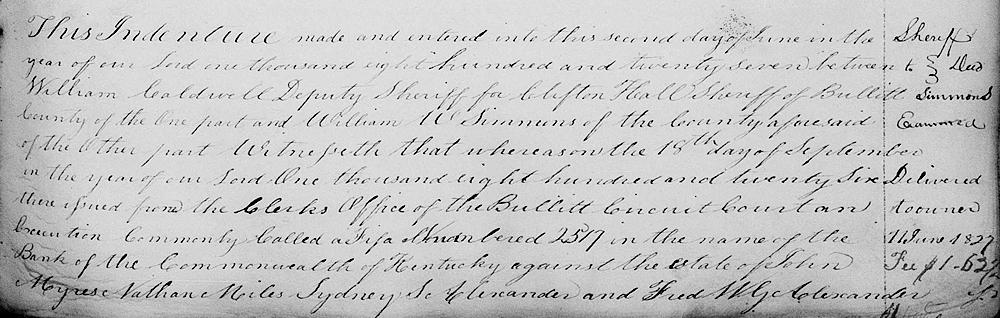 This Indenture made and entered into this second day of June in the
year of our Lord one thousand eight hundred and twenty seven between
William Caldwell Deputy Sheriff for Clifton Hall Sheriff of Bullitt
County of the One part and William W Simmons of the County aforesaid
of the Other part Witnesseth that whereas on the 18th day of September
in the year of our Lord One thousand eight hundred and twenty Six
there issued from the Clerks Office of the Bullitt Circuit Court an
Execution Commonly Called a Fifa Numbered 2517 in the name of the
Bank of the Commonwealth of Kentucky against the estate of John
Myres Nathan Miles Sydney Alexander and Fred W G Alexander
Sheriff
to Deed
Simmons
Examined
Delivered
to owner
11 June 1827
Fee $1-62½